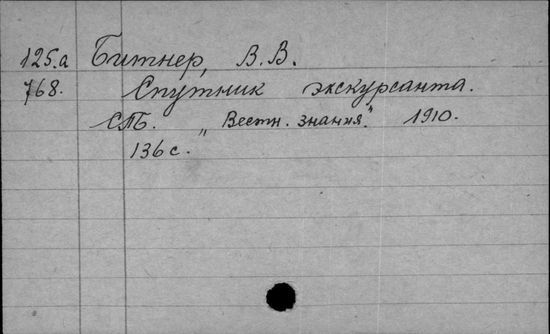 125.а Битнер, В. В.
768. Спутник экскурсанта.
СПб. „Вестн. знания". 1910.
136 с.